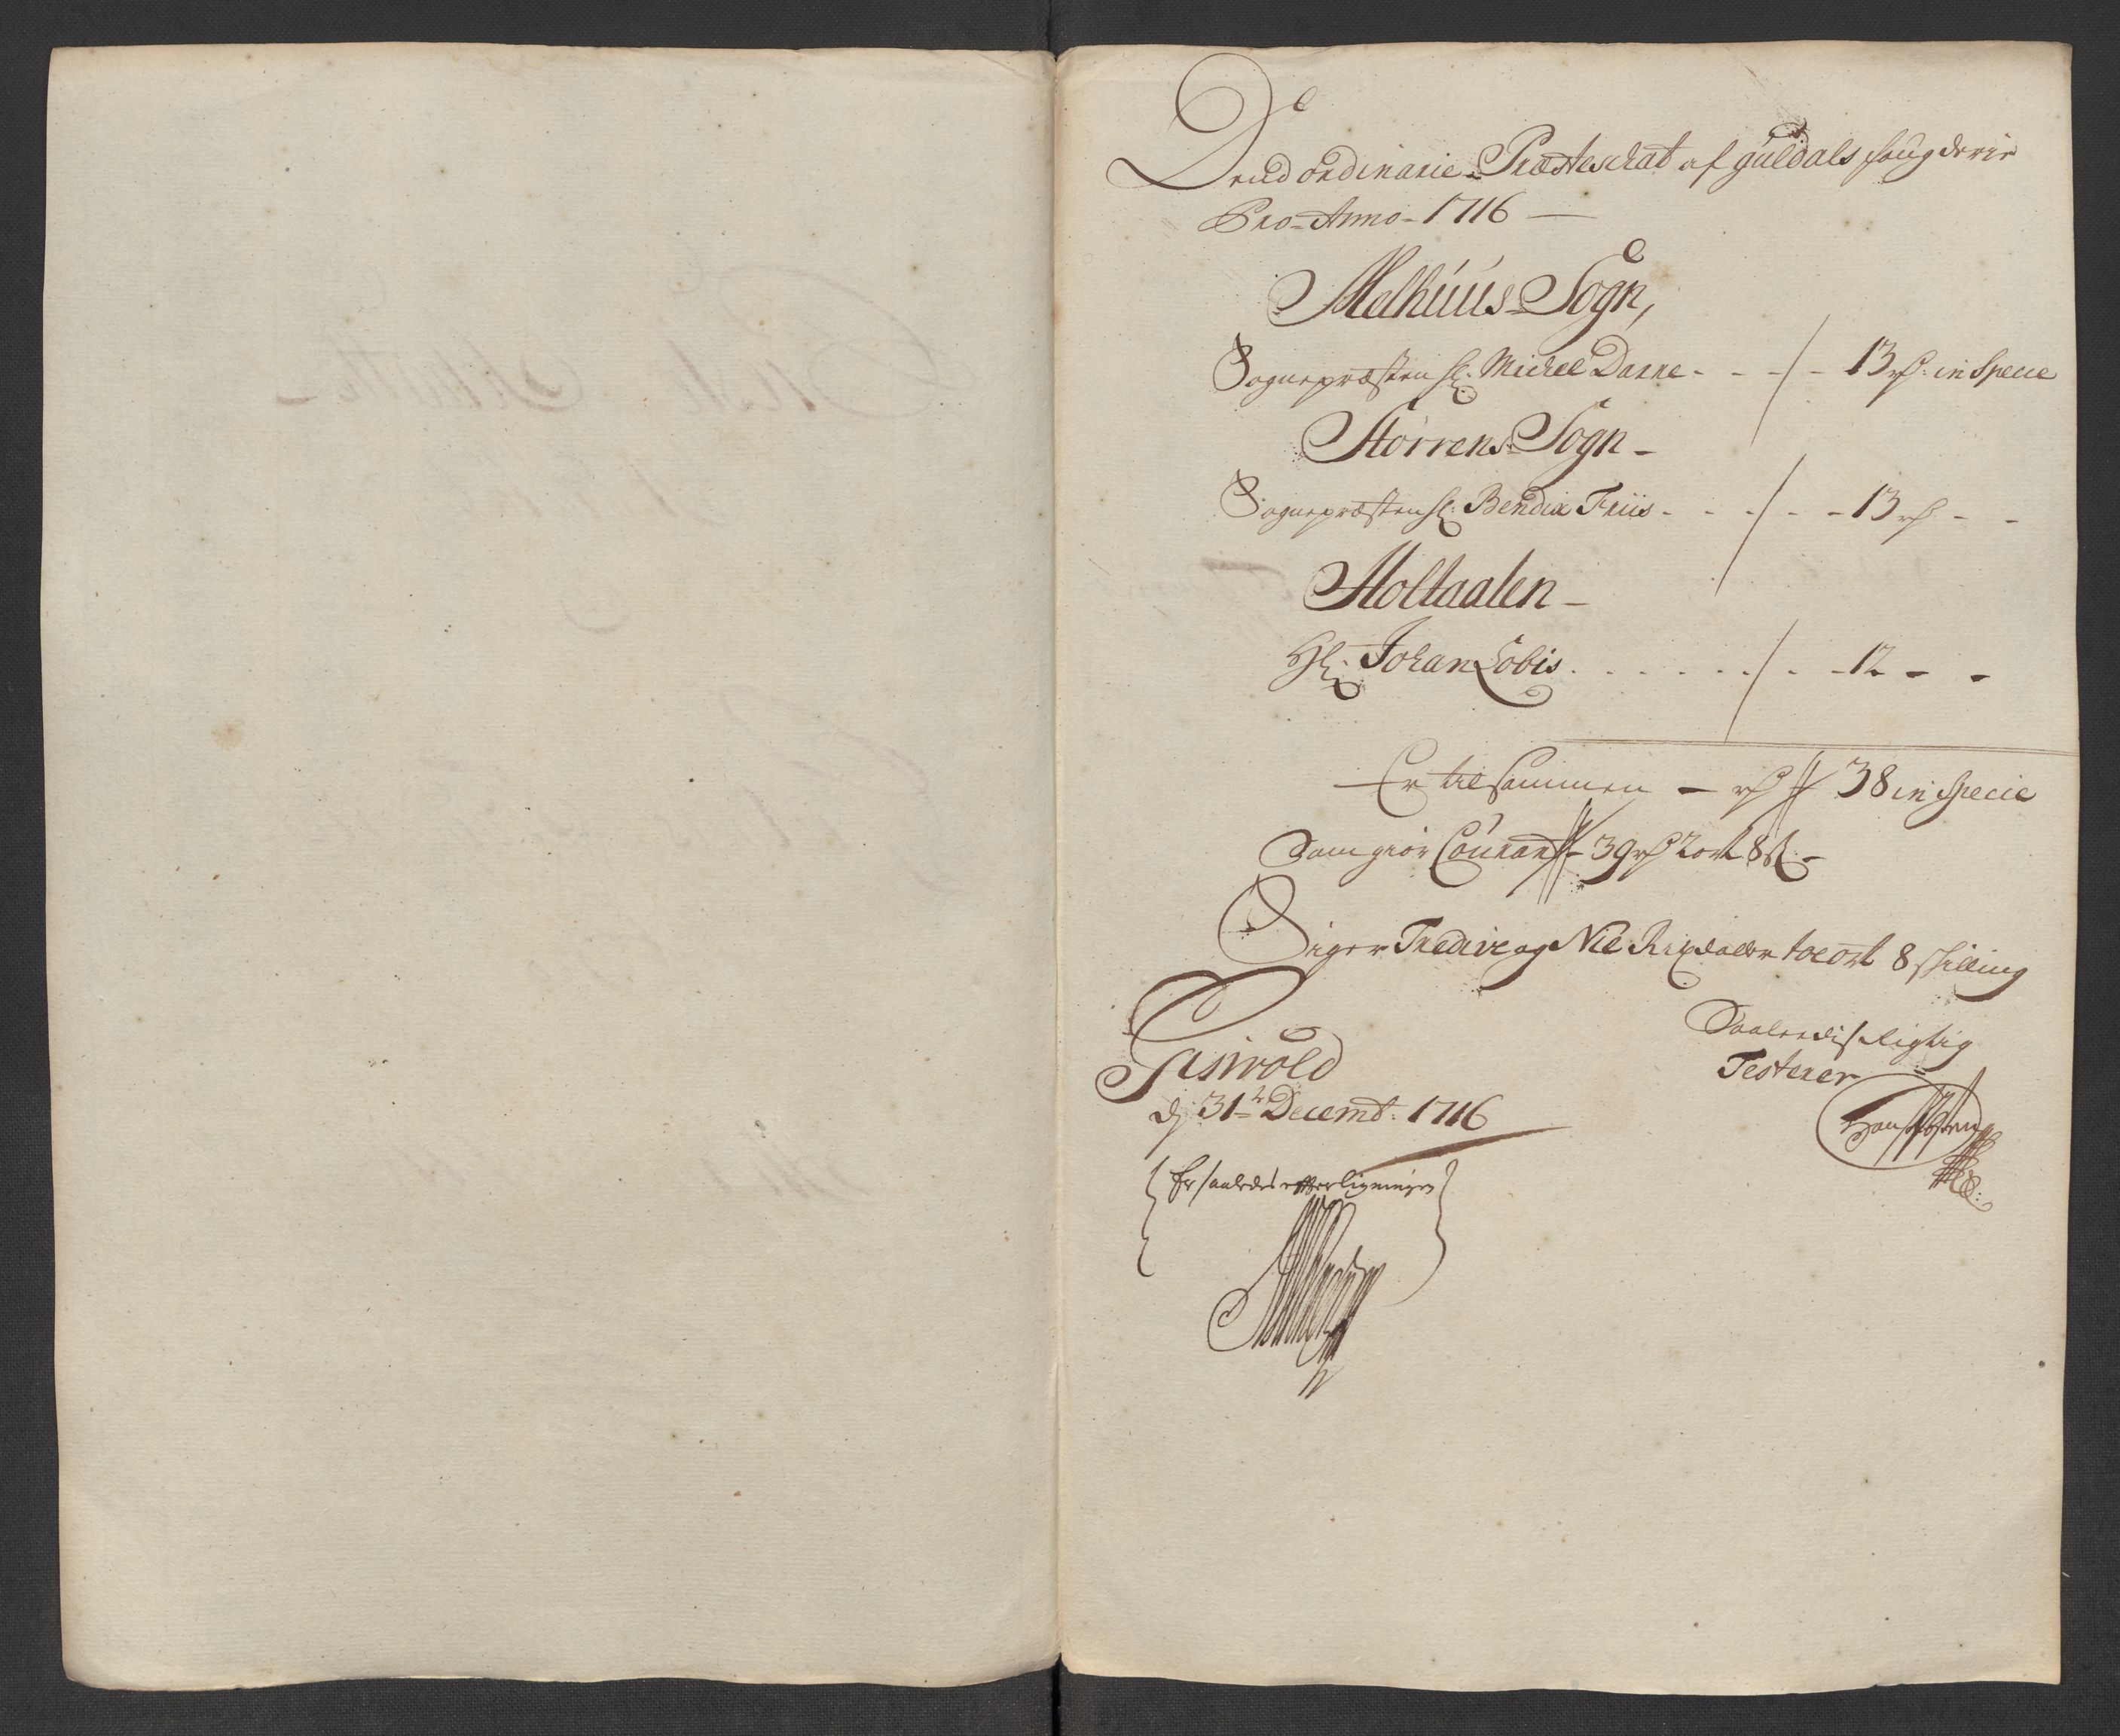 Dend ordinarie Præsteschat af guldals fougderie
Pro Anno 1716
Melhuus Sogn,
Sognepræsten hr: Michel Darre - - - 13 rd: in Specie
Størrens Sogn -
Sognepræsten hr: Bendix Friis - - - - - 13 rd - -
Holtaalen -
Hr: Johan Lobis . . . . . . - 12 - -
Er tilsammen - rd 38 in Specie
Som giør Courant - 39 rd 2 ort 8 s: -
Siger Tredive og Nie Rixdaler toe ort 8 skilling
Saaledis Rigtig
Testerer
d: 31te Decembr: 1716
Er saaledes effter ligningen